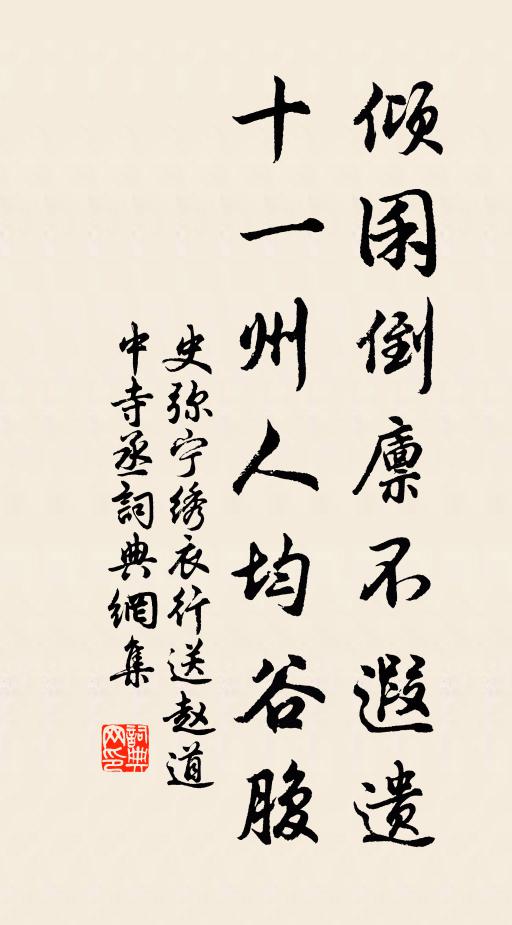 倾囷倒廪不遐遗
十一州人均谷腹
史弥宁绣衣行送赵道
中寺丞詞典網集
詞典
网印